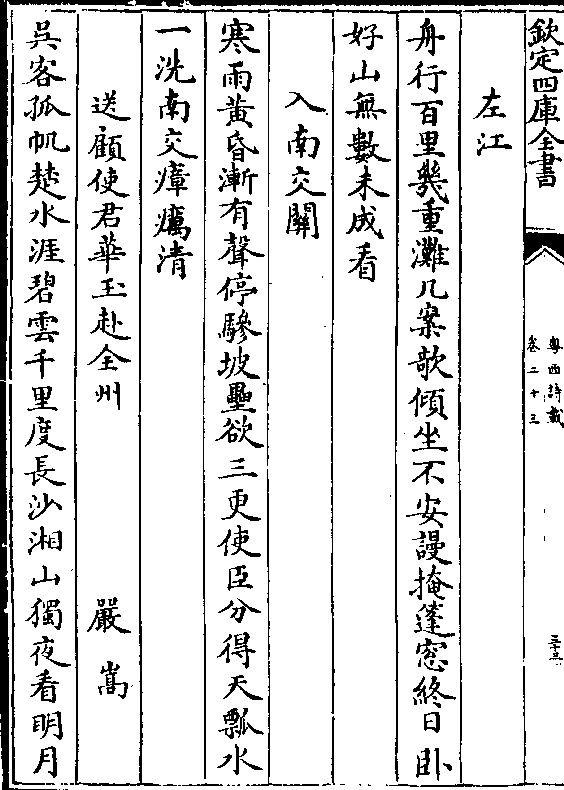 欽定四庫全書
粵西詩載
卷二十三
三十三
左江
舟行百里幾重灘几案欹傾坐不安謾掩蓬窓終日卧
好山無數未成看
入南交關
寒雨黄昏漸有聲停驂坡壘欲三更使臣分得天瓢水
一洗南交瘴癘清
送顧使君華玉赴全州 嚴嵩
吳客孤帆楚水涯碧雲千里度長沙湘山獨夜看明月